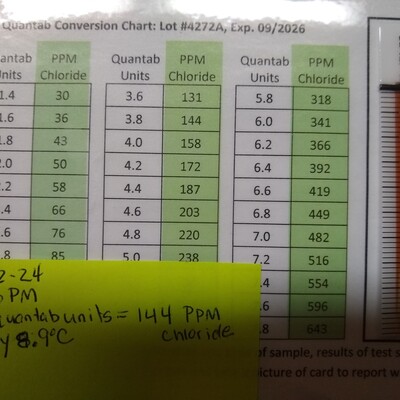 Quantab Conversion Chart: Lot #4272A, Exp. 09/2026
antab PPM Quantab PPM Quantab PPM
Units Chloride Units Chloride Units Chloride
1.4 30 3.6 131 5.8 318
1.6 36 3.8 144 6.0 341
1.8 43 4.0 158 6.2 366
2.0 50 4.2 172 6.4 392
.2 58 4.4 187 6.6 419
.4 66 4.6 203 6.8 449
.6 76 4.8 220 7.0 482
.8 85 5.0 238 7.2 516
.4 554
.6 596
.8 643
2-24
PM
Quantab units = 144 PPM
8.9°C Chloride
of sample, results of test s
picture of card to report w